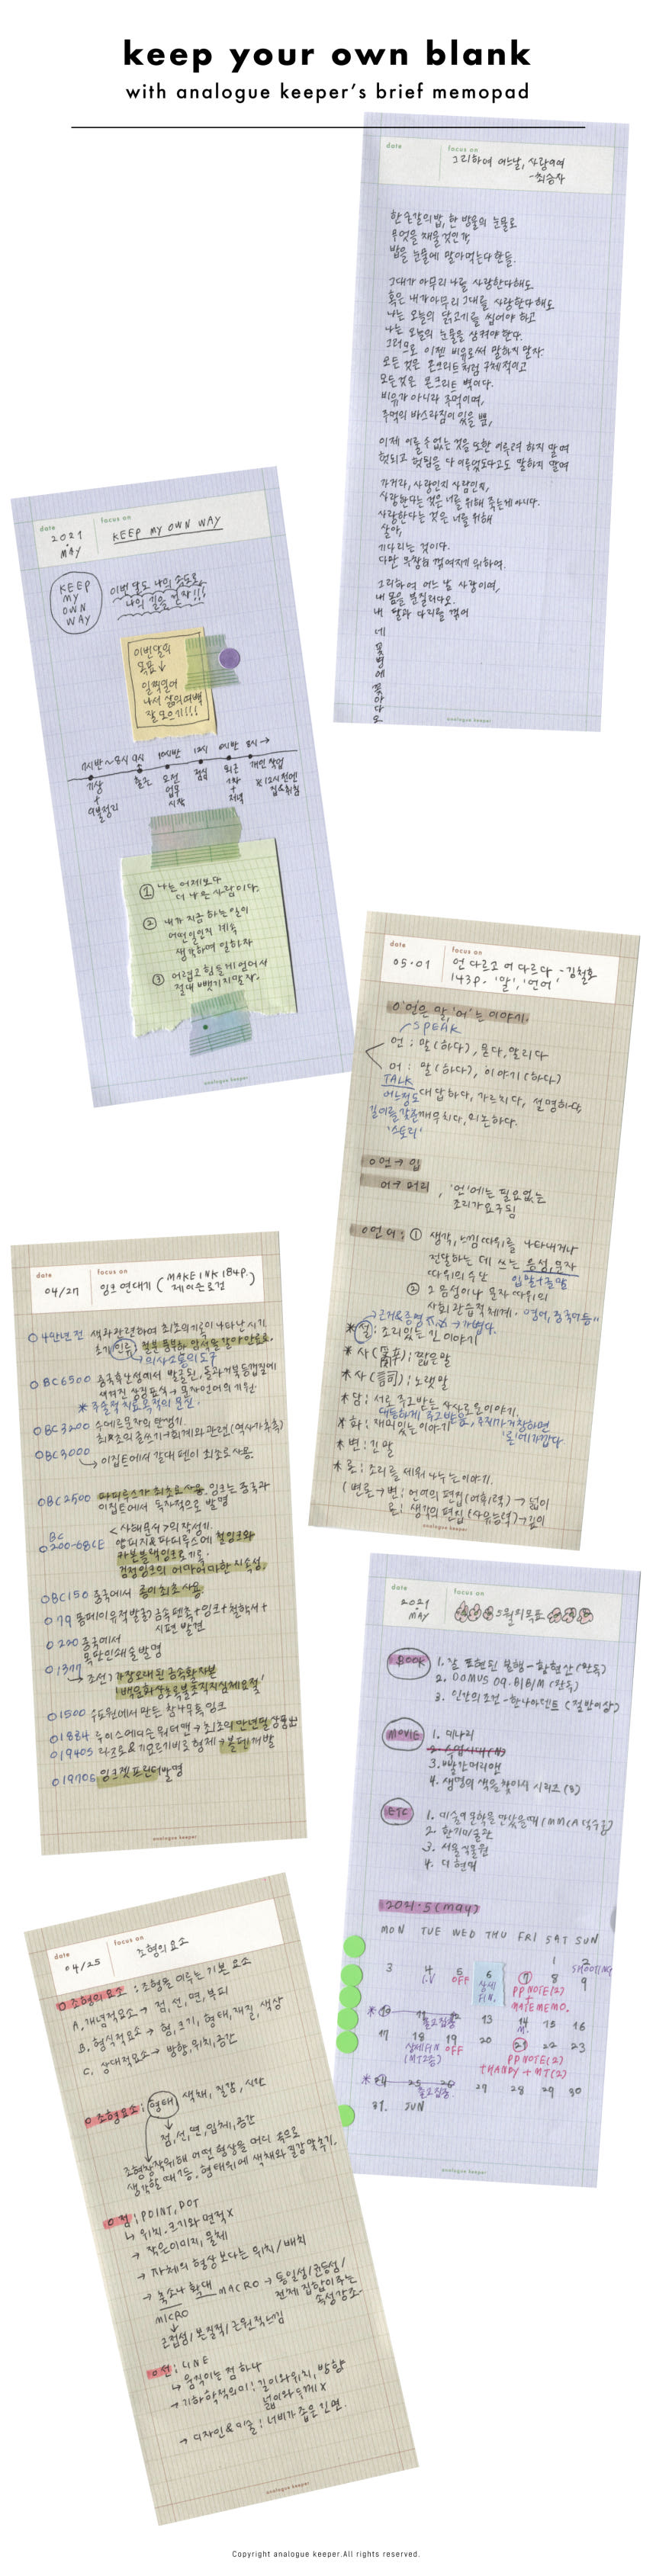 keep your own blank
with analogue keeper's brief memopad
date
focus on
그리하여 어느날, 사랑이여
-최승자
한 숟갈의 밥, 한 방울의 눈물로
무엇을 채울 것인가,
밥을 눈물에 말아먹는다 한들.
그대가 아무리 나를 사랑한다해도
혹은 내가 아무리 그대를 사랑한다해도
나는 오늘의 닭고기를 씹어야 하고
나는 오늘의 눈물을 삼켜야 한다.
그러므로 이젠 비유로써 말하지 말자.
모든 것은 콘크리트처럼 구체적이고
모든 것은 콘크리트 벽이다.
비유가 아니라 주먹이며,
주먹의 바스라짐이 있을 뿐,
이제 이룰 수 없는 것을 또한 이루려 하지 말며
헛되고 헛됨을 다 이루었다고도 말하지 말며
가거라, 사랑인지 사람인지,
사랑한다는 것은 너를 위해 죽는게 아니다.
사랑한다는 것은 너를 위해
살아,
기다리는 것이다.
다만 무참히 꺾여지기 위하여.
그리하여 어느 날 사랑이여,
내 몸을 분질러다오.
내 팔과 다리를 꺾어
네
꽃
병
에
꽂
아
다
오
analogue keeper
date
2021
MAY
focus on
KEEP MY OWN WAY
KEEP
MY
OWN
WAY
이번 달도 나의 속도로
나의 길을 걷자!!!
이번달의
목표↓
일찍일어
나서 삶의여백
잘 모으기!!!
7시반~8시 9시 10시반 12시 6시반 8시→
기상 출근 오전 점심 퇴근 개인작업
+
이불정리
업무
시작
+
저녁
① 나는 어제보다
더 나은 사람이다.
② 내가 지금 하는 일이
어떤일인지 계속
생각하며 일하자
③ 어렵고 힘들게 얻어서
절대 뺏기지말자.
analogue keeper
date
05.01
focus on
언 다르고 어 다르다 -김철호
143p. '말', '언어'
○'언'은 말, '어'는 이야기.
SPEAK
언 : 말(하다), 묻다, 알리다
어 : 말(하다), 이야기(하다)
TALK
대답하다, 가르치다, 설명하다,
깨우치다, 의논하다.
어느정도
길이를 갖춘
'스토리'
○언→입
어→머리, '언'에는 필요없는
조리가 요구됨
○언어 : ① 생각, 느낌 따위를 나타내거나
전달하는 데 쓰는 음성, 문자
따위의 수단
입말+글말
② 그 음성이나 문자 따위의
사회 관습적 체계. 영어, 중국어 등
*설: 조리있는 긴 이야기
*사(辭): 짧은말
*사(詞): 노랫말
*담: 서로 주고받는 사사로운이야기.
*화: 재미있는 이야기
*변: 긴 말
*론: 조리를 세워 나누는 이야기.
(변론→변: 언어의 편집(어휘력)→넓이
론: 생각의 편집(사유능력)→깊이
analogue keeper
date
04/27
focus on
잉크 연대기 (MAKE INK 184p.)
제이슨로건
○4만년전 색과 관련하여 최초의 기록이 나타난 시기
의사소통의 도구
○BC6500
○BC3200 수메르문자의 탄생기.
○BC3000
이집트에서 갈대 펜이 최초로 사용.
○BC2500 파피루스가 최초로 사용. 잉크는 중국과
이집트에서 독자적으로 발명
<사해문서>의 작성기.
양피지&파피루스에 철잉크와
카본블랙잉크로 기록.
검정잉크의 어마어마한 지속성.
○BC150 중국에서 종이 최초 사용.
○79 폼페이유적발굴) 금속펜촉+잉크+철학서+
시편 발견
○220 중국에서
목판인쇄술 발명
○1377
→조선) 가장오래된 금속활자본
'백운화상초록불조직지심체요절'
○1500 수도원에서 만든 참나무 혹 잉크
○1884 루이스에디슨 워터맨→최초의 만년필 상품화
○1940S 라즈로&기요르기비로 형제→볼펜개발
○1970S 잉크젯 프린터 발명
analogue keeper
date
2021
MAY
focus on
5월의목표
BOOK
1. 잘 표현된 불행-황현산 (완독)
2. DOMUS 09. BIB/M (완독)
3. 인간의조건-한나아렌트 (절반이상)
MOVIE
1. 미나리
2. 수업시대(N)
3. 빨간머리앤
4. 생명의 색을 찾아서 시리즈 (3)
ETC
1. 미술이 문학을 만났을때 (MMCA덕수궁)
2. 환기미술관
3. 서울식물원
4. 더현대
2021.5(may)
MON TUE WED THU FRI SAT SUN
1 2
SHOOTING
3 4 5 6 7 8 9
L.V OFF 상세
FIN.
PP NOTE(2)
+
MATE MEMO.
*10 11 12 13 14 15 16
출고집중
M.
17 18 19 20 21 22 23
상세FIN OFF
(MT2종)
PP NOTE(2)
+HANDY+MT(2)
*24 25 26 27 28 29 30
출고집중.
31. JUN
analogue keeper
date
04/25
focus on
조형의 요소
○조형의요소 : 조형을 이루는 기본 요소
A. 개념적요소→ 점, 선, 면, 부피
B. 형식적요소→ 형, 크기, 형태, 재질, 색상
C. 상대적요소→ 방향, 위치, 공간
○조형요소: 형태, 색채, 질감, 시간
점, 선, 면, 입체, 공간
조형창작위해 어떤 형상을 머리 속으로
생각할 때 1등. 형태위에 색채와 질감 맞추기.
○점: POINT, DOT
↳ 위치. 크기와 면적X
→ 작은이미지, 물체
→ 자체의 형상보다는 위치/배치
→ 축소나 확대
MACRO → 동일성/균등성/
전체 집합이 주는
속성강조.
MICRO
근접성/본질적/근원적느낌
○선: LINE
↳ 움직이는 점 하나
→ 기하학적의미: 길이와위치, 방향
넓이와 두께X
→ 디자인&미술: 너비가 좁은 긴 면.
analogue keeper
Copyright analogue keeper.All rights reserved.